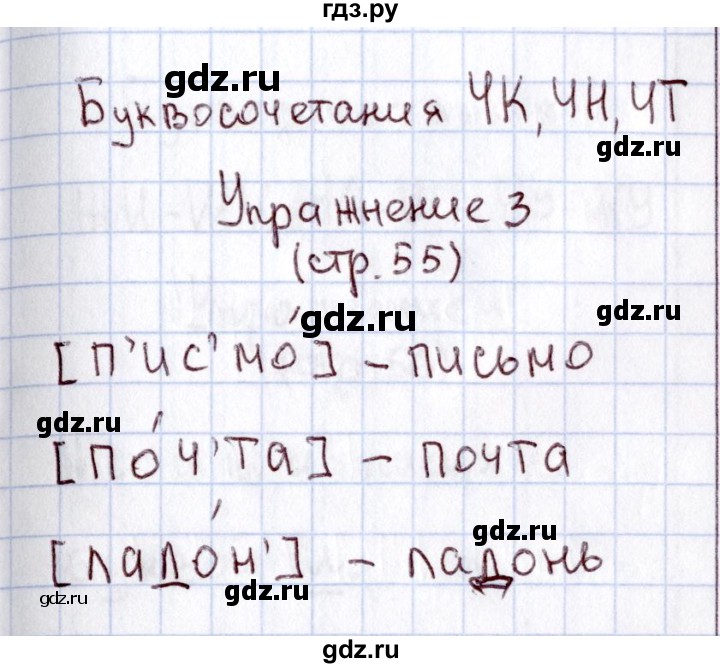 гдз.ру
gdz.ru
Буквосочетания ЧК, ЧН, ЧТ
gdz.ru
Упражнение 3
(стр. 55)
gdz.ru
gdz.ru
[п'ис'мо́] – письмо
gdz.ru
[по́ч'та] – почта
gdz.ru
[ладо́н'] – ладонь
gdz.ru
gdz.ru
gdz.ru